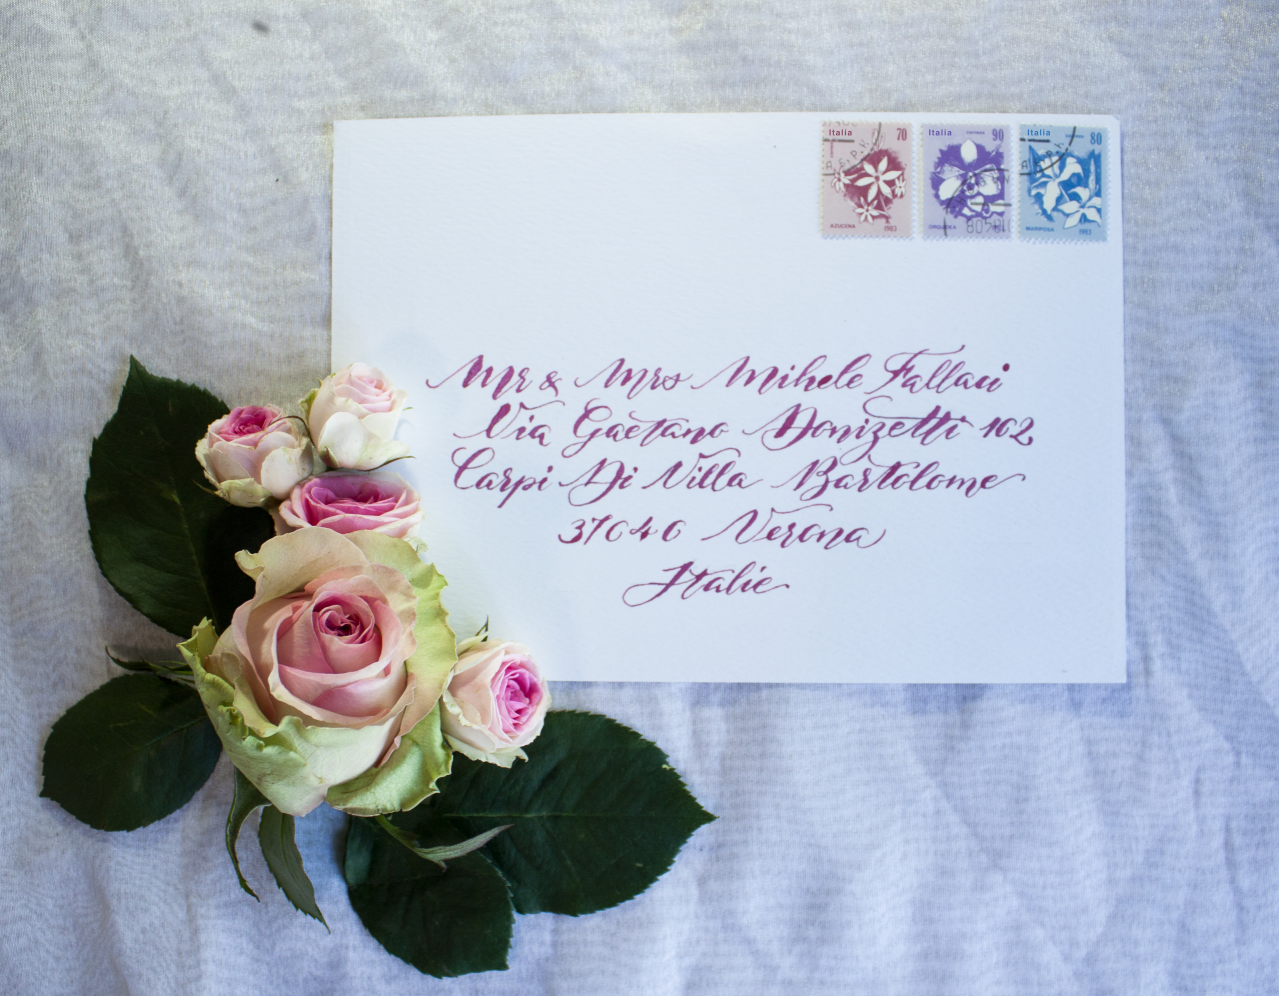 Italia 70
AZUCENA 1983
Italia 90
ORQUIDEA
Italia 80
MARIPOSA 1983
Mr & Mrs Mihele Fallaci
Via Gaetano Donizetti 102
Carpi Di Villa Bartolome
37046 Verona
Italie